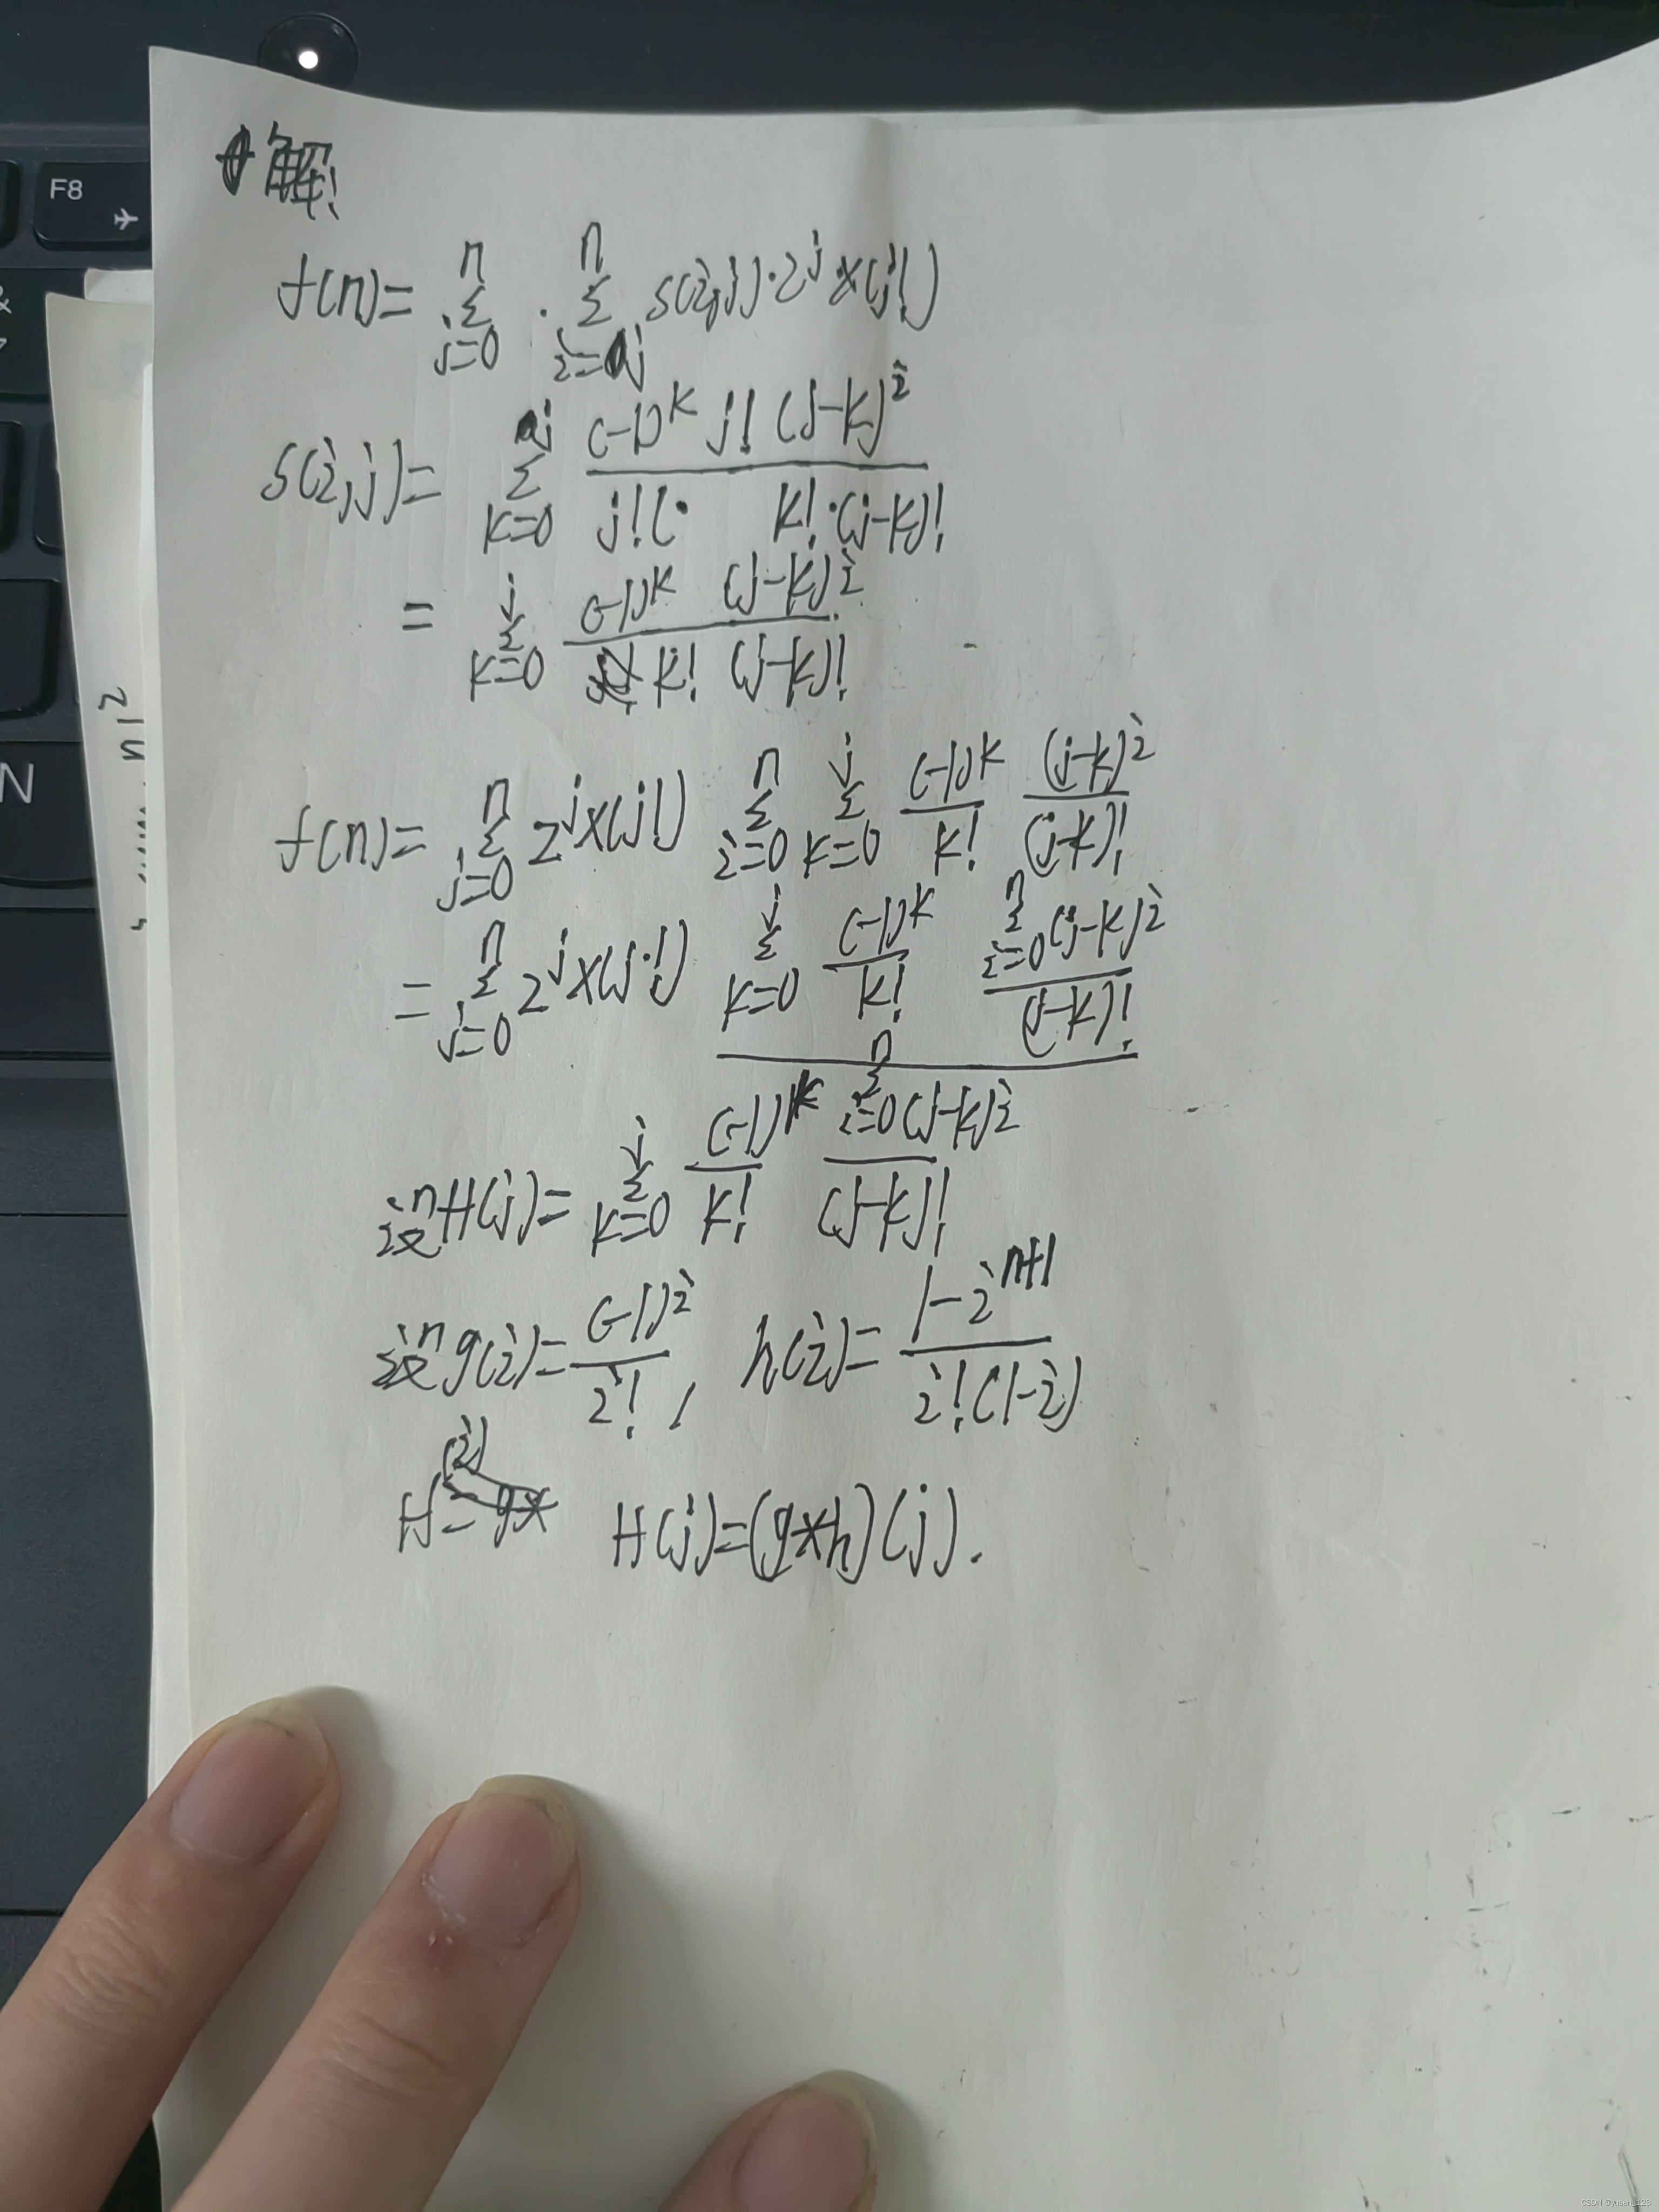 F8
&
N
n!²
解!
f(n)= Σ_{j=0}^{n} · Σ_{i=j}^{n} S(i,j)·2^j·×(j!)
S(i,j)= Σ_{k=0}^{j} \frac{(-1)^k j! (j-k)^i}{j!(· k!·(j-k)!}
= Σ_{k=0}^{j} \frac{(-1)^k (j-k)^i}{k! (j-k)!}
f(n)= Σ_{j=0}^{n} 2^j×(j!) Σ_{i=0}^{n} Σ_{k=0}^{j} \frac{(-1)^k}{k!} \frac{(j-k)^i}{(j-k)!}
= Σ_{j=0}^{n} 2^j×(j!) Σ_{k=0}^{j} \frac{(-1)^k}{k!} \frac{Σ_{i=0}^{n}(j-k)^i}{(j-k)!}
设H(j)= Σ_{k=0}^{j} \frac{(-1)^k}{k!} \frac{Σ_{i=0}^{n}(j-k)^i}{(j-k)!}
设g(i)= \frac{(-1)^i}{i!}, h(i)= \frac{1-i^{n+1}}{i!(1-i)}
H(j)=(g*h)(j).
CSDN @yusen_123